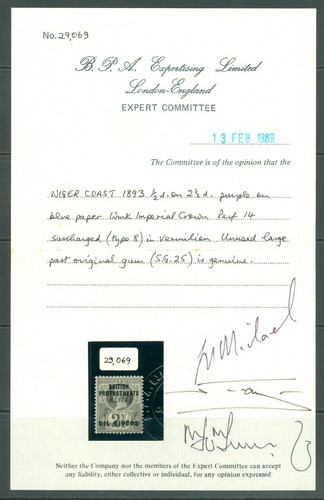 No. 29,069
B. P. A. Expertising Limited
London-England
EXPERT COMMITTEE
13 FEB 1989
The Committee is of the opinion that the
NIGER COAST 1893 ½d. on 2½d. purple on
blue paper Wmk Imperial Crown Perf 14
surcharged (type 8) in vermilion Unused large
part original gum (S.G. 25) is genuine.
29,069
BRITISH
PROTECTORATE
OIL RIVERS
Neither the Company nor the members of the Expert Committee can accept
any liability, either collective or individual, for any opinion expressed